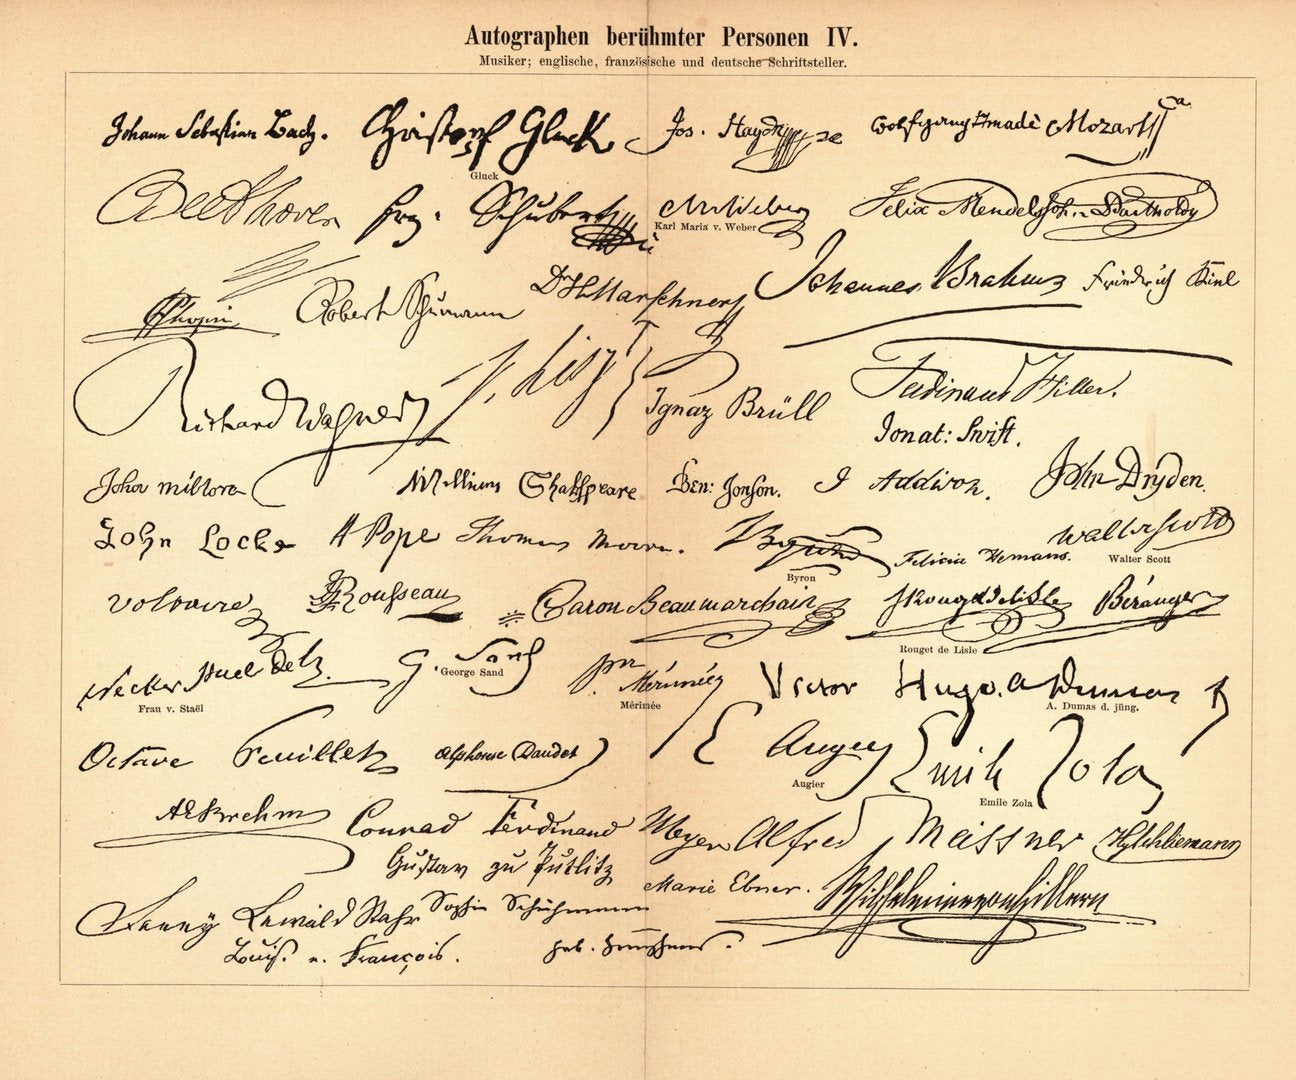 Autographen berühmter Personen IV.
Musiker; englische, französische und deutsche Schriftsteller.
Johann Sebastian Bach. Christoph Gluck Jos. Haydn Wolfgang Amadè Mozart
Gluck
Beethoven Frz. Schubert CMvWeber Felix Mendelssohn Bartholdy
Karl Maria v. Weber
Chopin Robert Schumann Dr H Marschner Johannes Brahms Friedrich Kiel
Richard Wagner F. Liszt Ignaz Brüll Ferdinand Hiller.
Jonat: Swift.
John Milton William Shakspeare Ben: Jonson. J Addison. John Dryden.
John Locke A Pope Thomas Moore. Byron Felicia Hemans. Walter Scott
Byron Walter Scott
Voltaire JJRousseau Caron Beaumarchais Rouget de Lisle Béranger
Rouget de Lisle
Necker Stael de h. G. Sand Pr. Mérimée Victor Hugo. A Dumas f
Frau v. Staël George Sand Mérimée A. Dumas d. jüng.
Octave Feuillet Alphonse Daudet E Augier Emile Zola
Augier Emile Zola
AEBrehm Conrad Ferdinand Meyer Alfred Meissner HySchliemann
Gustav zu Putlitz Marie Ebner. Wilhelmine von Hillern
Fanny Lewald Stahr Sophie
Louise v. François. geb.